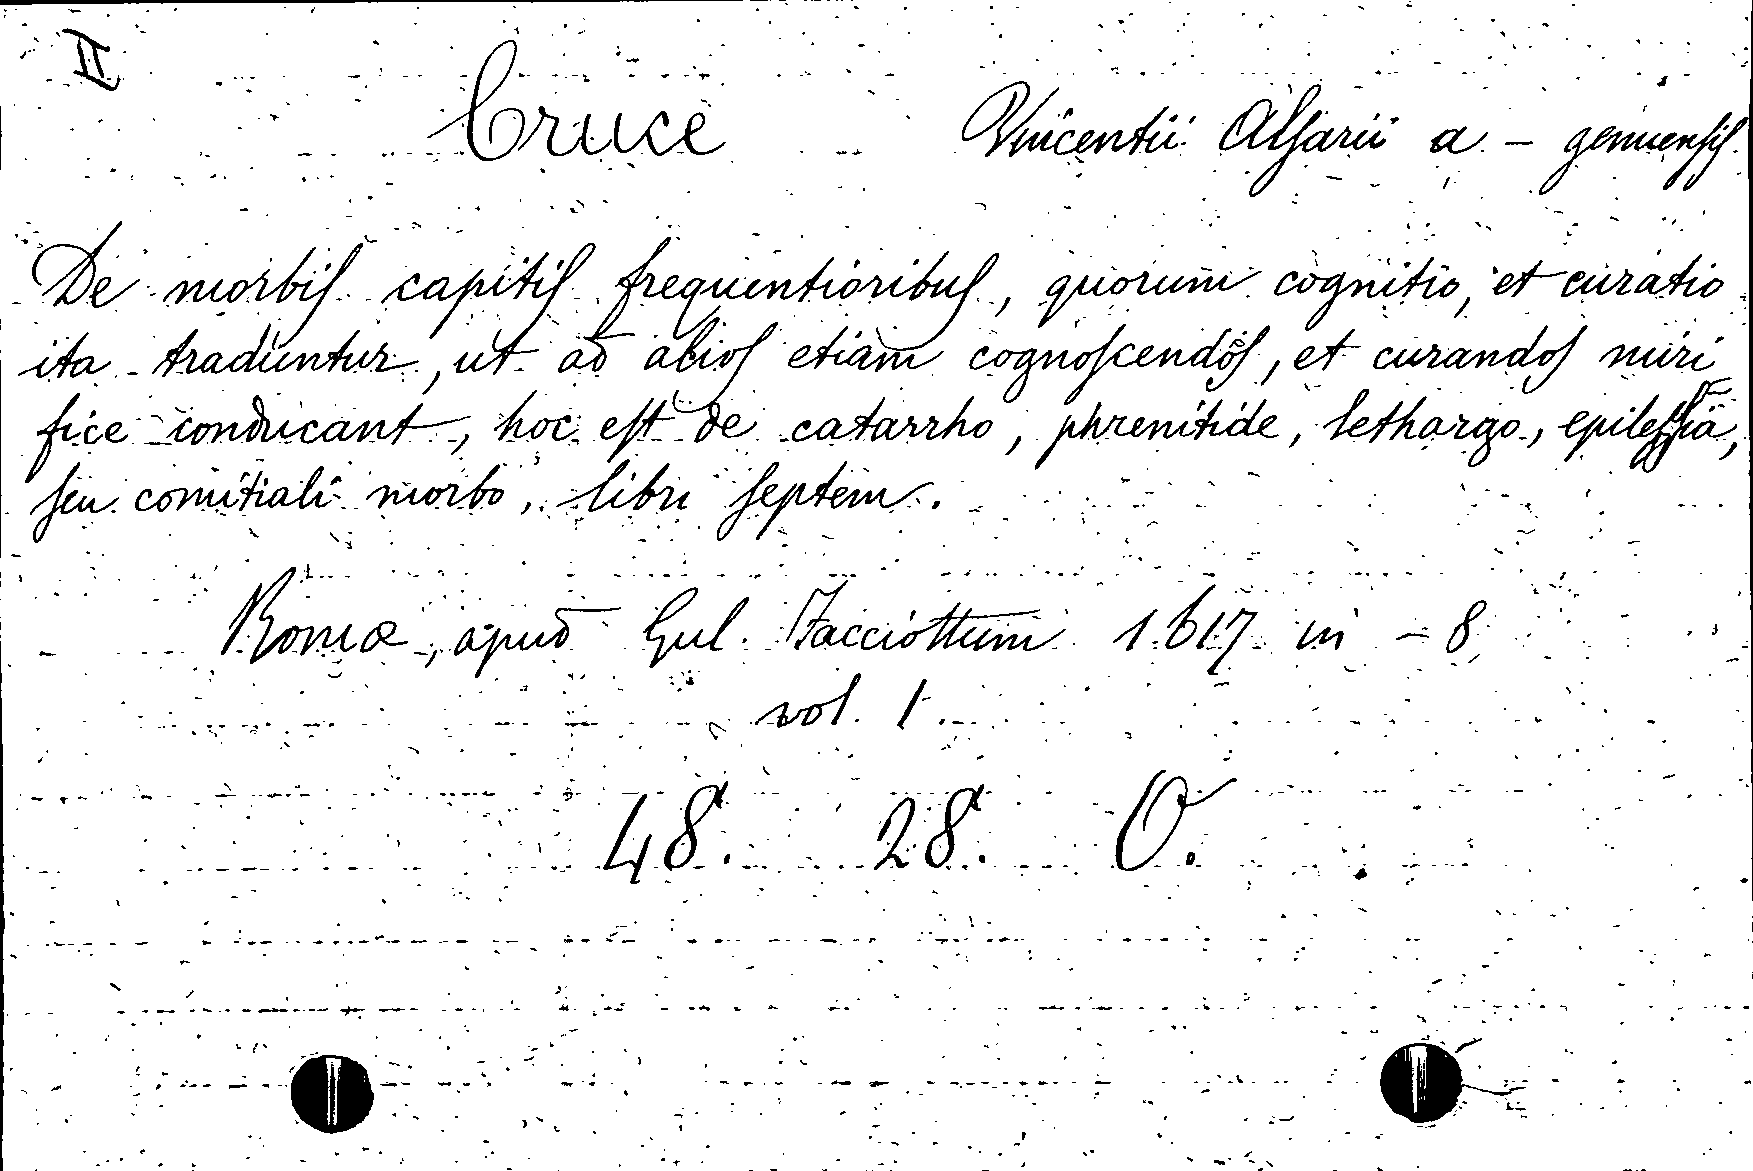 II
Cruce Vincentii Alsarii a - genuensis
De morbis capitis frequentioribus, quorum cognitio, et curatio
ita traduntur, ut ad alios etiam cognoscendos, et curandos miri
fice conducant, hoc est de catarrho, phrenitide, lethargo, epilepsia,
seu comitiali morbo, libri septem.
Romæ, apud Gul. Facciottum 1617 in - 8
vol. 1.
48. 28. O.